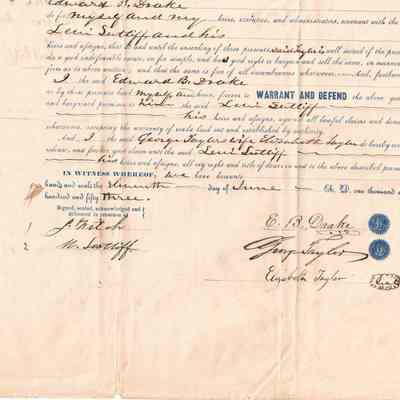 Edward B. Drake
do for myself and my heirs, executors, and administrators, covenant with the
Levi Sutliff and his
heirs and assigns, that at and until the ensealing of these presents, said Taylor is well seized of the
as a good indefeasible estate, in fee simple, and has good right to bargain and sell the same, in manner
form as is above written; and that the same is free of all incumbrances whatsoever. And, further
I the said Edward B. Drake
do by these presents bind myself and my heirs, forever to WARRANT AND DEFEND the above
and bargained premises to him the said Levi Sutliff
his heirs and assigns, against all lawful claims and
whatsoever, excepting the warranty of
And, I the said George Taylors wife Elizabeth Taylor do hereby
release, and forever quit claim unto the said Levi Sutliff
his heirs and assigns, all my right and title of dower in and to the above described
IN WITNESS WHEREOF, we have hereunto
hands and seals the eleventh day of June A. D. one thousand
hundred and fifty three.
Signed, sealed, acknowledged and
delivered in presence of
1 J. Fitch
2 M. Sutliff
E. B. Drake
George Taylor
Elizabeth Taylor